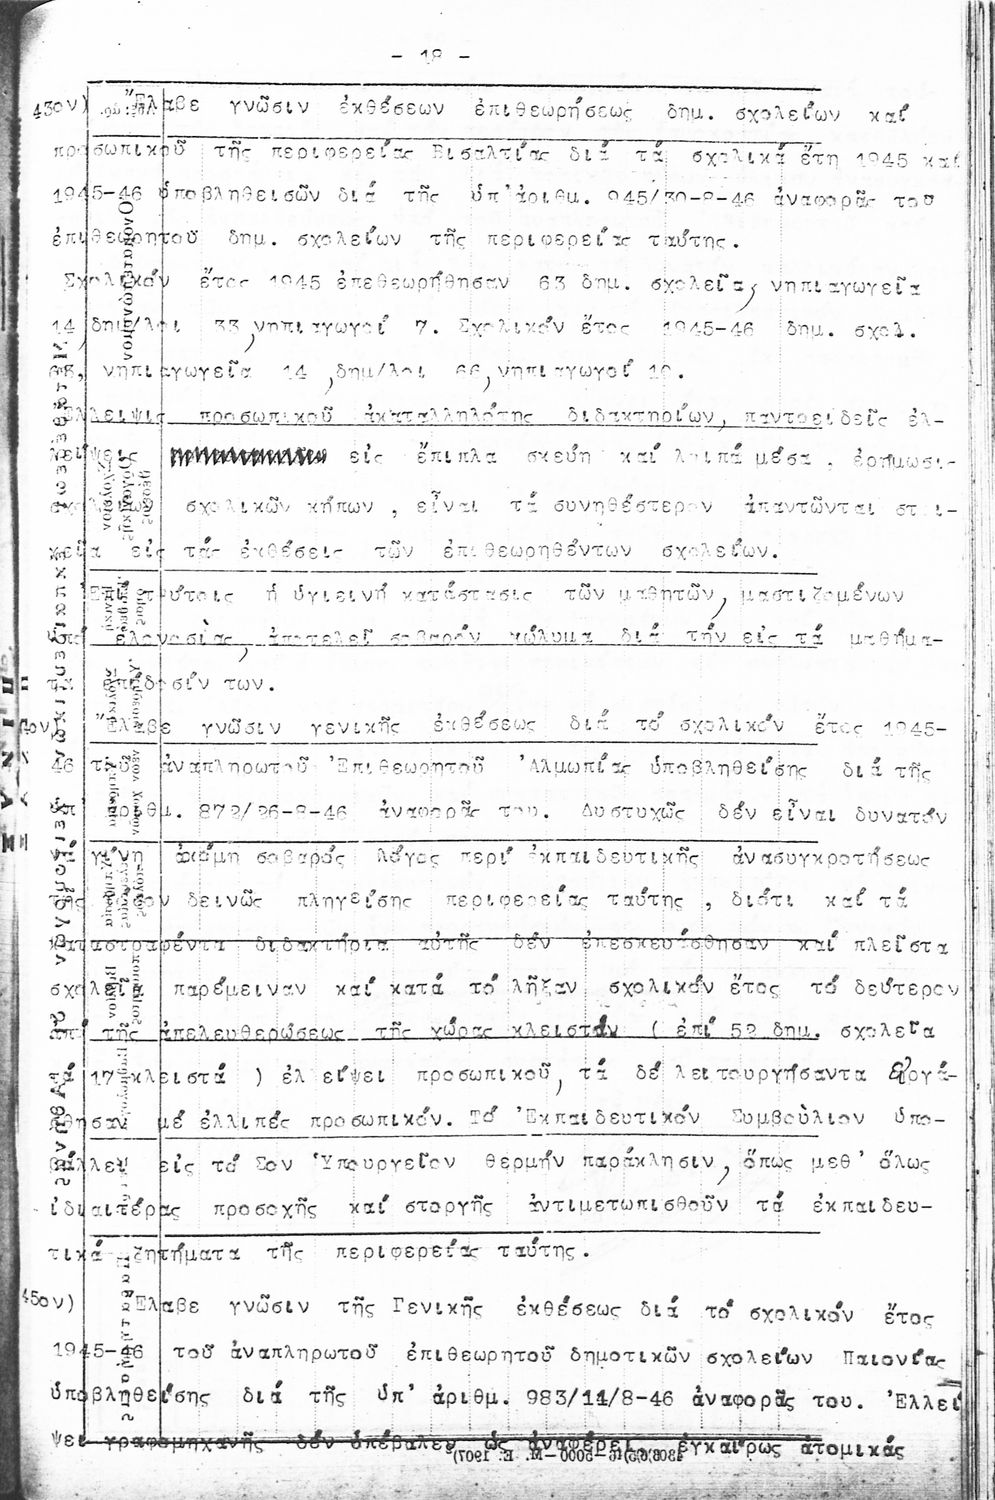 - 18 -
43ον) Ἔλαβε γνῶσιν ἐκθέσεων ἐπιθεωρήσεως δημ. σχολείων καί
προσωπικοῦ τῆς περιφερείας Βισαλτίας διά τά σχολικά ἔτη 1945 καί
1945-46 ὑποβληθεισῶν διά τῆς ὑπ'ἀριθμ. 945/30-8-46 ἀναφορᾶς τοῦ
ἐπιθεωρητοῦ δημ. σχολείων τῆς περιφερείας ταύτης.
Σχολικόν ἔτος 1945 ἐπεθεωρήθησαν 63 δημ. σχολεῖα, νηπιαγωγεῖα
14 δημ/λοι 33, νηπιαγωγοί 7. Σχολικόν ἔτος 1945-46 δημ. σχολ.
νηπιαγωγεῖα 14, δημ/λοι 66, νηπιαγωγοί 10.
Ἔλλειψις προσωπικοῦ ἀκαταλληλότης διδακτηρίων, παντοειδεῖς ἐλ-
λείψεις εἰς ἔπιπλα σκεύη καί λοιπά μέσα, ἐρήμωσις
σχολικῶν κήπων, εἶναι τά συνηθέστερον ἀπαντῶνται στοι-
χεῖα εἰς τάς ἐκθέσεις τῶν ἐπιθεωρηθέντων σχολείων.
Ἐπί τούτοις ἡ ὑγιεινή κατάστασις τῶν μαθητῶν, μαστιζομένων
ὑπό ἑλονοσίας, ἀποτελεῖ σοβαρόν κώλυμα διά τήν εἰς τά μαθήμα-
τα ἐπίδοσίν των.
Ἔλαβε γνῶσιν γενικῆς ἐκθέσεως διά τό σχολικόν ἔτος 1945-
46 τοῦ ἀναπληρωτοῦ Ἐπιθεωρητοῦ Ἀλμωπίας ὑποβληθείσης διά τῆς
ὑπ' ἀριθμ. 872/26-8-46 ἀναφορᾶς του. Δυστυχῶς δέν εἶναι δυνατόν
νά γίνη ἀκόμη σοβαρός λόγος περί ἐκπαιδευτικῆς ἀνασυγκροτήσεως
τῆς τόσον δεινῶς πληγείσης περιφερείας ταύτης, διότι καί τά
καταστραφέντα διδακτήρια αὐτῆς δέν ἐπεσκευάσθησαν καί πλεῖστα
σχολεῖα παρέμειναν καί κατά τό λῆξαν σχολικόν ἔτος τό δεύτερον
ἀπό τῆς ἀπελευθερώσεως τῆς χώρας κλειστά ( ἐπί 52 δημ. σχολεῖα
τά 17 κλειστά ) ἐλλείψει προσωπικοῦ, τά δέ λειτουργήσαντα εἰργά-
σθησαν μέ ἐλλιπές προσωπικόν. Τό Ἐκπαιδευτικόν Συμβούλιον ὑπο-
βάλλει εἰς τό Σον Ὑπουργεῖον θερμήν παράκλησιν, ὅπως μεθ' ὅλως
ἰδιαιτέρας προσοχῆς καί στοργῆς ἀντιμετωπισθοῦν τά ἐκπαιδευ-
τικά ζητήματα τῆς περιφερείας ταύτης.
45ον) Ἔλαβε γνῶσιν τῆς Γενικῆς ἐκθέσεως διά τό σχολικόν ἔτος
1945-46 τοῦ ἀναπληρωτοῦ ἐπιθεωρητοῦ δημοτικῶν σχολείων Παιονίας
ὑποβληθείσης διά τῆς ὑπ' ἀριθμ. 983/14/8-46 ἀναφορᾶς του. Ἐλλεί
ψει γραφομηχανῆς δέν ὑπέβαλεν ὡς ἀναφέρει ἐγκαίρως ἀτομικάς